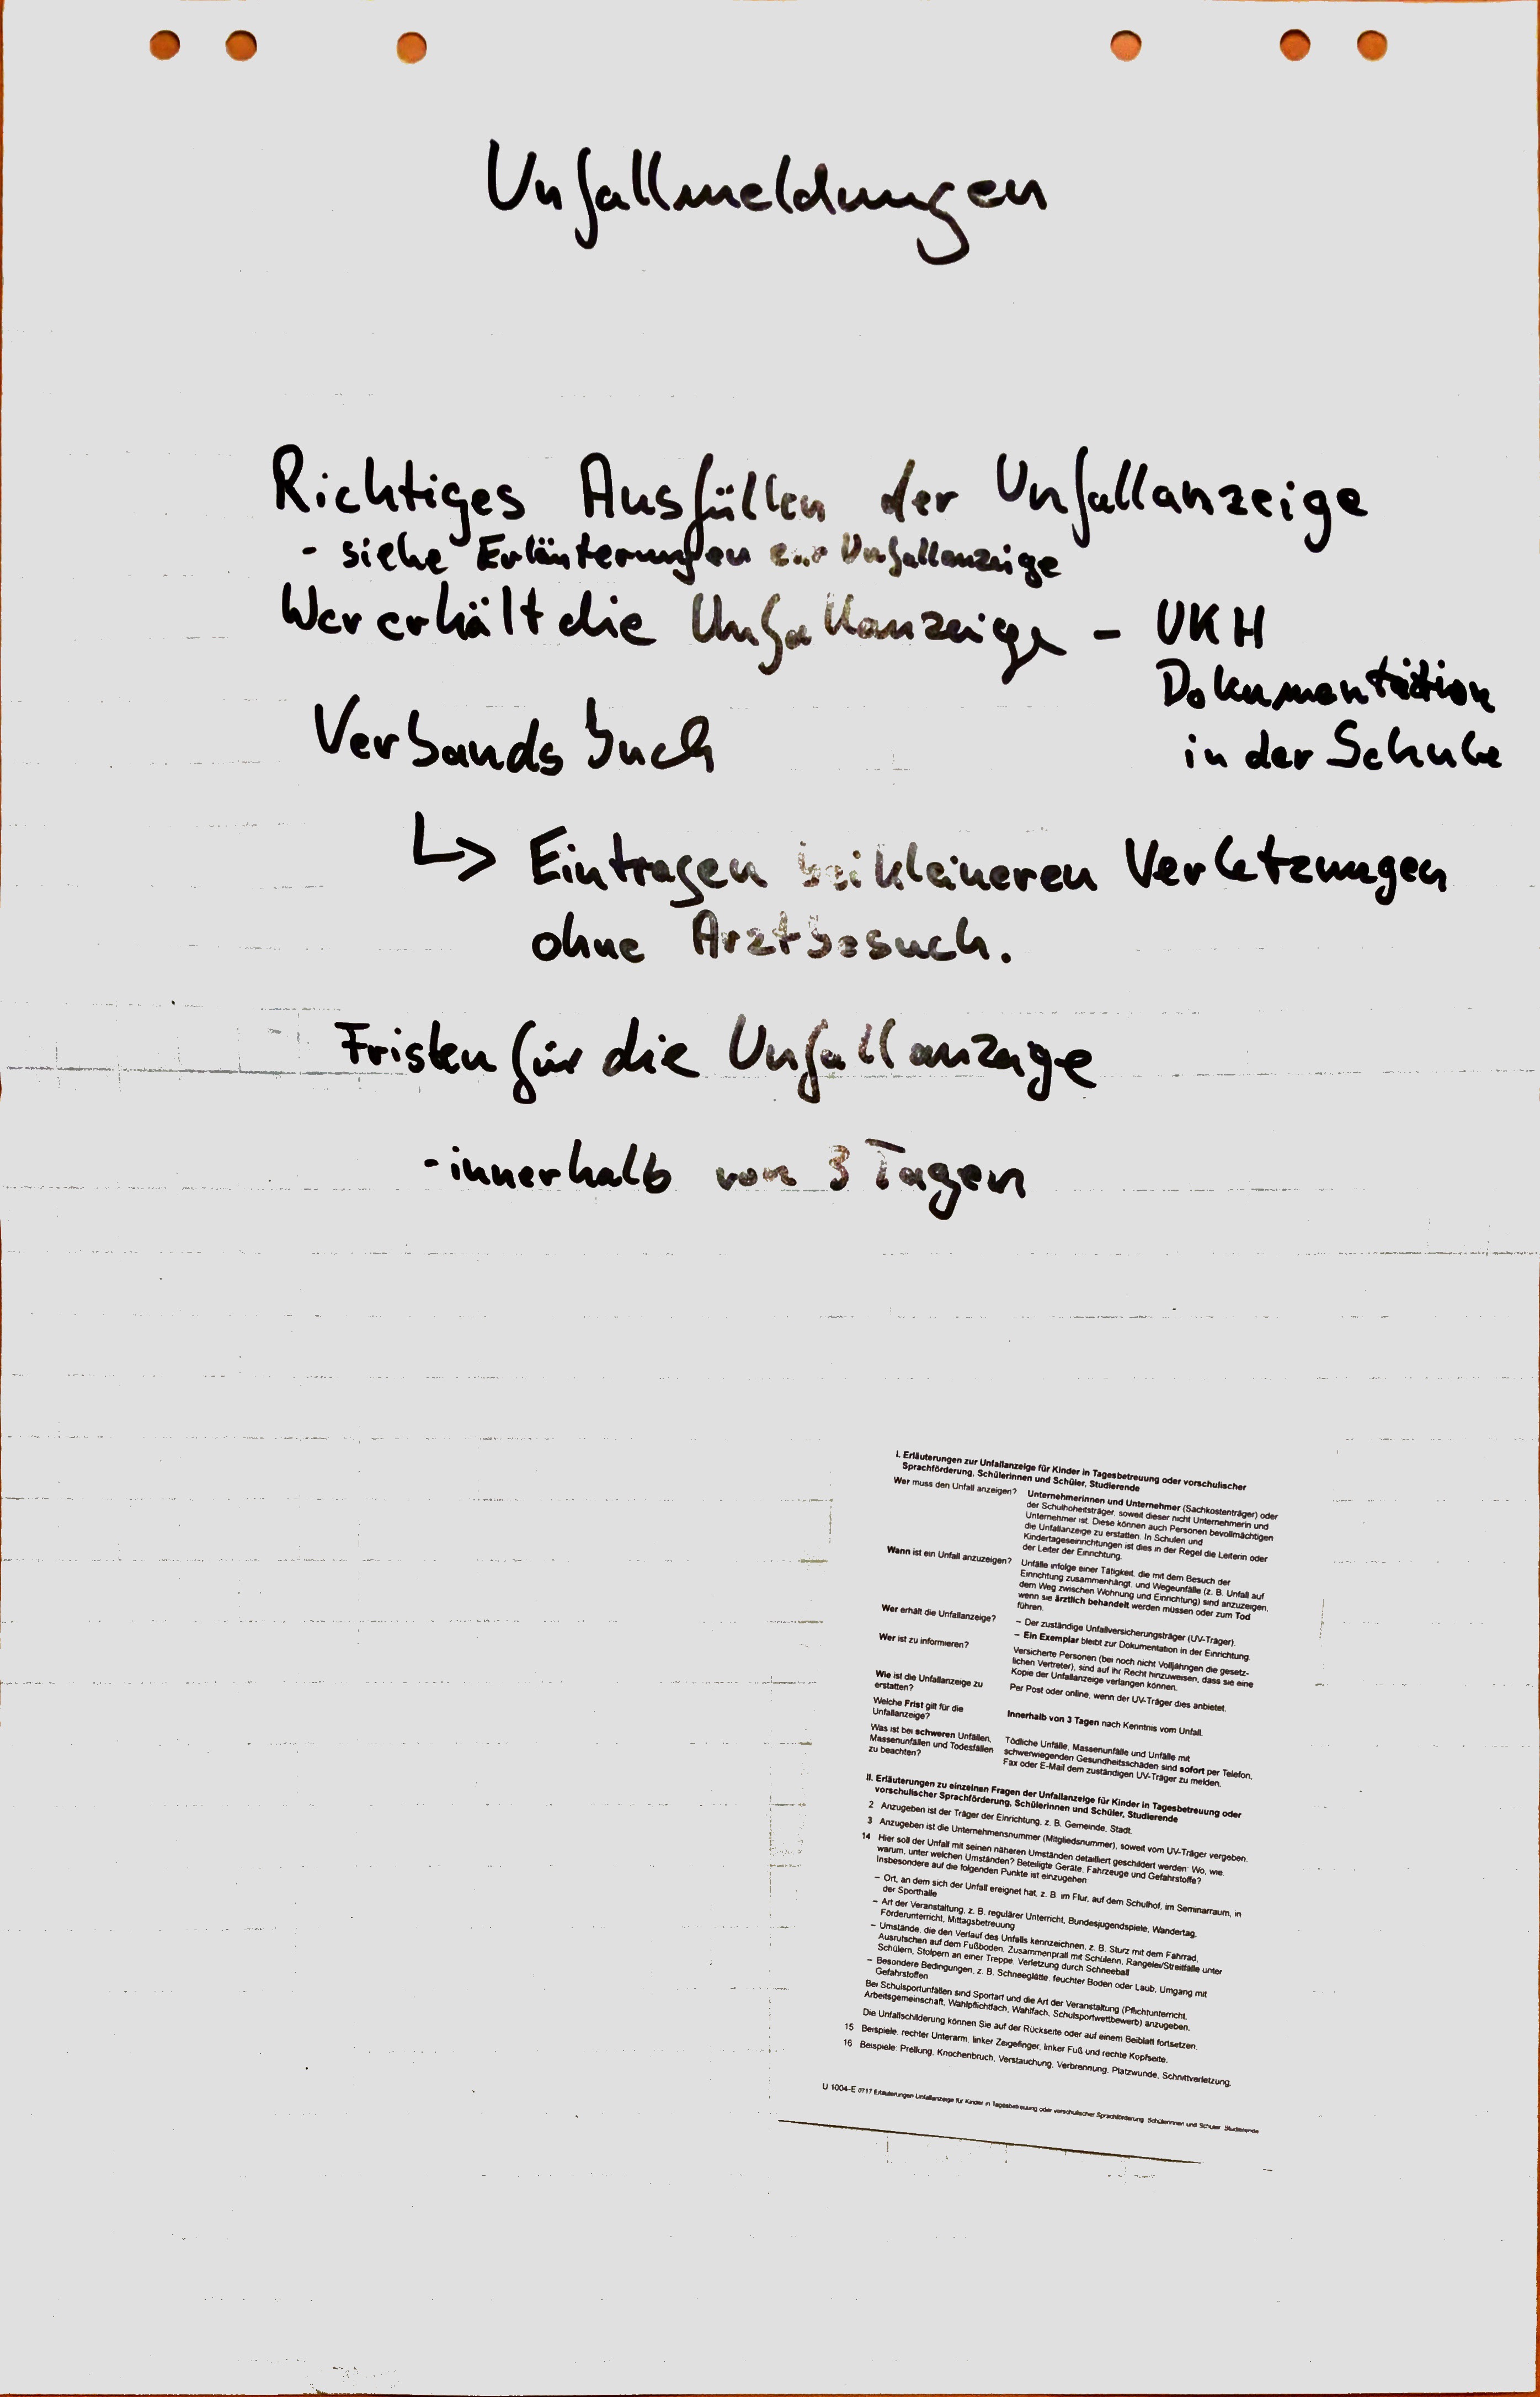 Unfallmeldungen
Richtiges Ausfüllen der Unfallanzeige
- siehe Erläuterungen zur Unfallanzeige
Wer erhält die Unfallanzeige - UKH
Dokumentation
in der Schule
Verbandsbuch
↳ Eintragen bei kleineren Verletzungen
ohne Arztbesuch.
Fristen für die Unfallanzeige
- innerhalb von 3 Tagen
I. Erläuterungen zur Unfallanzeige für Kinder in Tagesbetreuung oder vorschulischer
Sprachförderung, Schülerinnen und Schüler, Studierende
Wer muss den Unfall anzeigen?
Unternehmerinnen und Unternehmer (Sachkostenträger) oder
der Schulhoheitsträger, soweit dieser nicht Unternehmerin und
Unternehmer ist. Diese können auch Personen bevollmächtigen
die Unfallanzeige zu erstatten. In Schulen und
Kindertageseinrichtungen ist dies in der Regel die Leiterin oder
der Leiter der Einrichtung.
Wann ist ein Unfall anzuzeigen?
Unfälle infolge einer Tätigkeit, die mit dem Besuch der
Einrichtung zusammenhängt, und Wegeunfälle (z. B. Unfall auf
dem Weg zwischen Wohnung und Einrichtung) sind anzuzeigen,
wenn sie ärztlich behandelt werden müssen oder zum Tod
führen.
Wer erhält die Unfallanzeige?
– Der zuständige Unfallversicherungsträger (UV-Träger).
– Ein Exemplar bleibt zur Dokumentation in der Einrichtung.
Wer ist zu informieren?
Versicherte Personen (bei noch nicht Volljährigen die gesetz-
lichen Vertreter), sind auf ihr Recht hinzuweisen, dass sie eine
Kopie der Unfallanzeige verlangen können.
Wie ist die Unfallanzeige zu
erstatten?
Per Post oder online, wenn der UV-Träger dies anbietet.
Welche Frist gilt für die
Unfallanzeige?
Innerhalb von 3 Tagen nach Kenntnis vom Unfall.
Was ist bei schweren Unfällen,
Massenunfällen und Todesfällen
zu beachten?
Tödliche Unfälle, Massenunfälle und Unfälle mit
schwerwiegenden Gesundheitsschäden sind sofort per Telefon,
Fax oder E-Mail dem zuständigen UV-Träger zu melden.
II. Erläuterungen zu einzelnen Fragen der Unfallanzeige für Kinder in Tagesbetreuung oder
vorschulischer Sprachförderung, Schülerinnen und Schüler, Studierende
2 Anzugeben ist der Träger der Einrichtung, z. B. Gemeinde, Stadt.
3 Anzugeben ist die Unternehmensnummer (Mitgliedsnummer), soweit vom UV-Träger vergeben.
14 Hier soll der Unfall mit seinen näheren Umständen detailliert geschildert werden: Wo, wie,
warum, unter welchen Umständen? Beteiligte Geräte, Fahrzeuge und Gefahrstoffe?
Insbesondere auf die folgenden Punkte ist einzugehen:
– Ort, an dem sich der Unfall ereignet hat, z. B. im Flur, auf dem Schulhof, im Seminarraum, in
der Sporthalle
– Art der Veranstaltung, z. B. regulärer Unterricht, Bundesjugendspiele, Wandertag,
Förderunterricht, Mittagsbetreuung
– Umstände, die den Verlauf des Unfalls kennzeichnen, z. B. Sturz mit dem Fahrrad,
Ausrutschen auf dem Fußboden, Zusammenprall mit Schülern, Rangelei/Streitfälle unter
Schülern, Stolpern an einer Treppe, Verletzung durch Schneeball
– Besondere Bedingungen, z. B. Schneeglätte, feuchter Boden oder Laub, Umgang mit
Gefahrstoffen
Bei Schulsportunfällen sind Sportart und die Art der Veranstaltung (Pflichtunterricht,
Arbeitsgemeinschaft, Wahlpflichtfach, Wahlfach, Schulsportwettbewerb) anzugeben.
Die Unfallschilderung können Sie auf der Rückseite oder auf einem Beiblatt fortsetzen.
15 Beispiele: rechter Unterarm, linker Zeigefinger, linker Fuß und rechte Kopfseite.
16 Beispiele: Prellung, Knochenbruch, Verstauchung, Verbrennung, Platzwunde, Schnittverletzung.
U 1004-E 0717 Erläuterungen Unfallanzeige für Kinder in Tagesbetreuung oder vorschulischer Sprachförderung Schülerinnen und Schüler Studierende